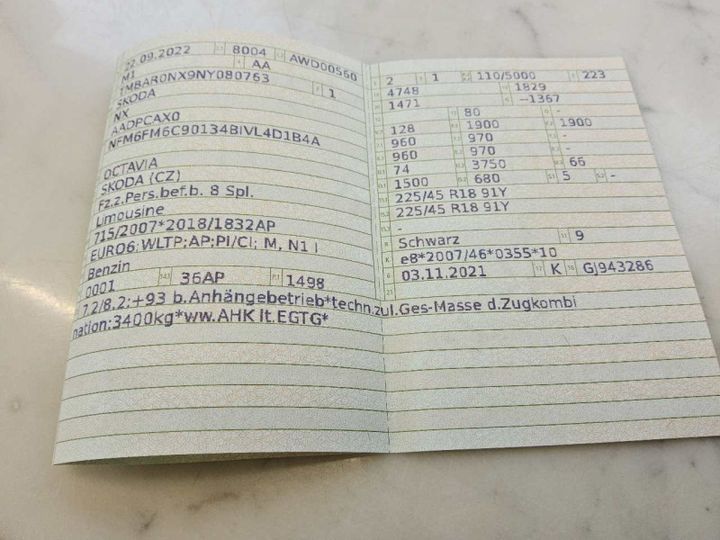 22.09.2022 8004 AWD00560
M1 AA
TMBAR0NX9NY080763 1
SKODA
NX
AADPCAX0
NFM6FM6C90134BIVL4D1B4A
OCTAVIA
SKODA (CZ)
Fz.z.Pers.bef.b. 8 Spl.
Limousine
715/2007*2018/1832AP
EURO6;WLTP;AP;PI/CI; M, N1 I
Benzin
0001 36AP 1498
7.2/8.2:+93 b.Anhängebetrieb*techn.zul.Ges-Masse d.Zugkombi
nation:3400kg*ww.AHK lt.EGTG*
2 1 110/5000 223
4748 1829
1471 –1367
80 -
128 1900 1900
960 970 -
960 970 -
74 3750 66
1500 680 5 -
225/45 R18 91Y
225/45 R18 91Y
-
Schwarz 9
e8*2007/46*0355*10
03.11.2021 K GJ943286